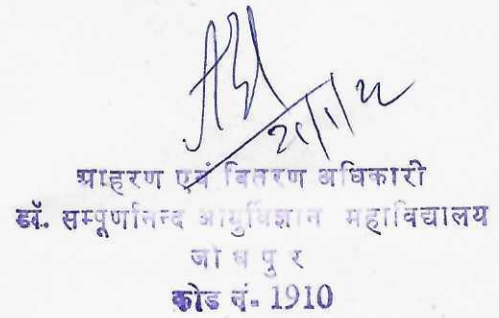 21/1/22
आहरण एवं वितरण अधिकारी
डॉ. सम्पूर्णानन्द आयुर्विज्ञान महाविद्यालय
जोधपुर
कोड नं. 1910